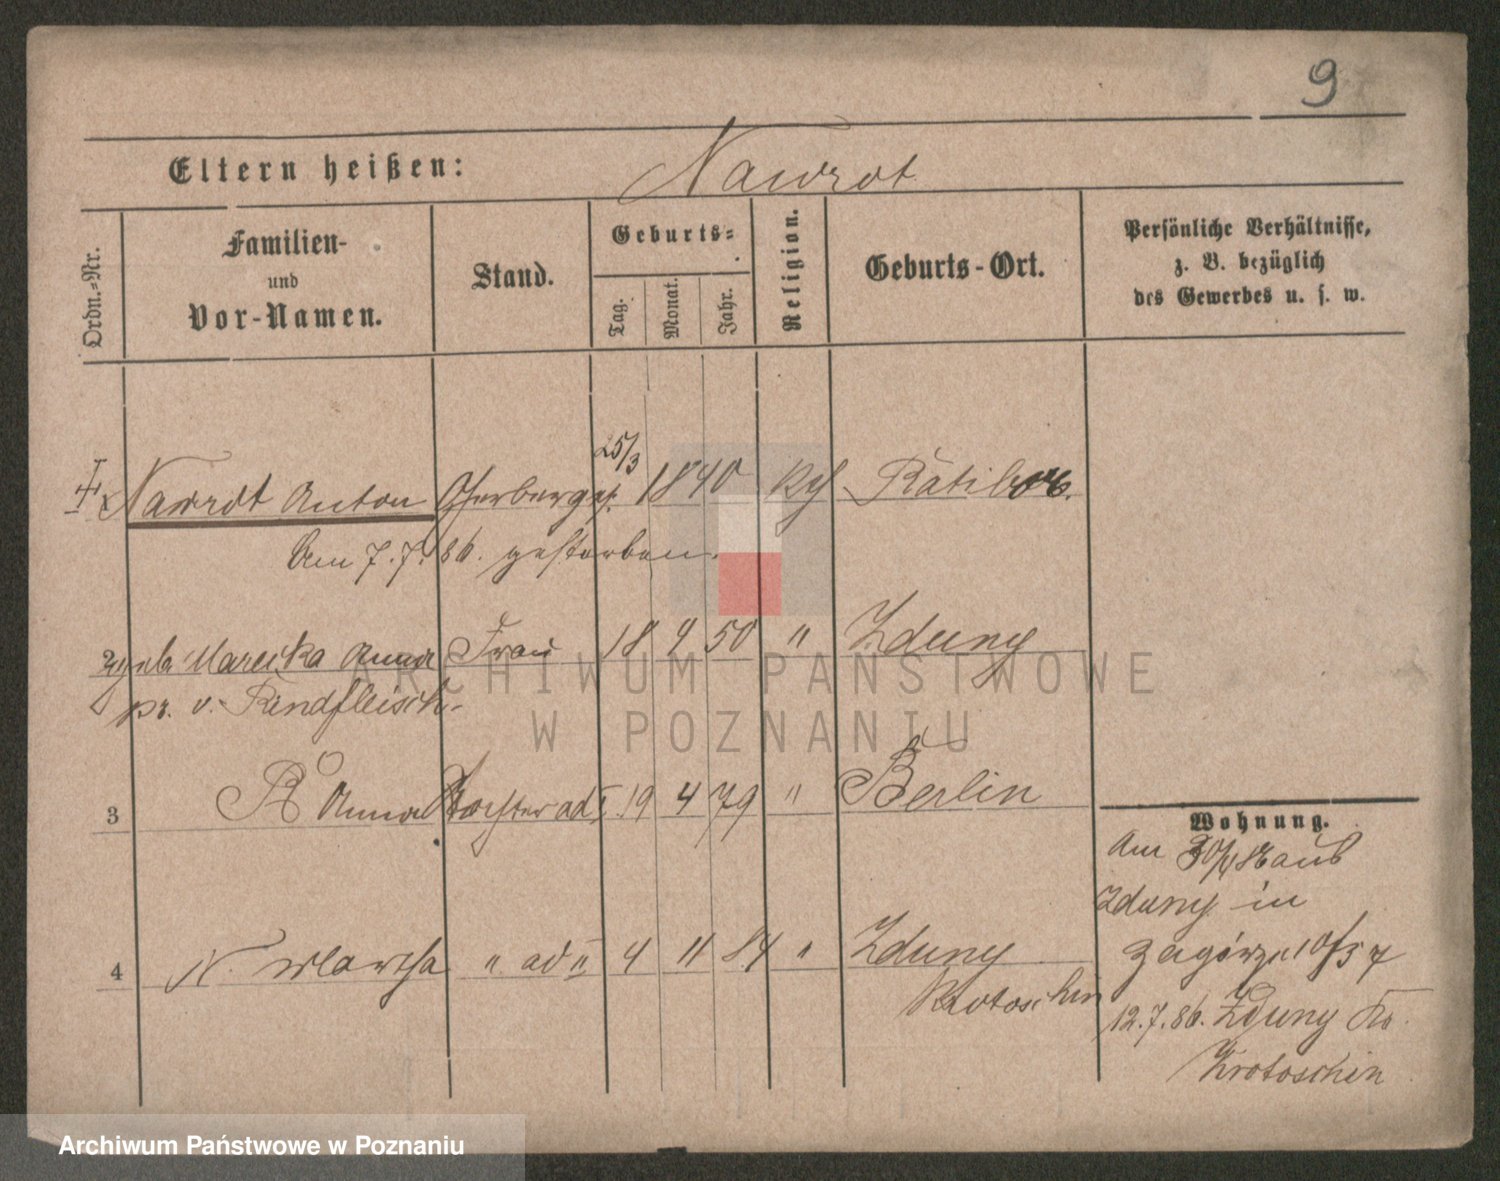 9
Eltern heißen: Nawrot
Ordn.-Nr.
Familien-
und
Vor-Namen.
Stand.
Geburts-
Tag. Monat. Jahr.
Religion.
Geburts-Ort.
Persönliche Verhältnisse,
z. B. bezüglich
des Gewerbes u. s. w.
25/3
Nawrot Anton Gerberges. 1840 Kth Ratibor.
Am 7.7.86. gestorben.
2 geb. Marecka Anna Frau 18 9 50 " Zduny
pr. v. Rindfleisch
3 Anna Tochter ad I. 19 4 79 " Berlin
4 N. Martha " ad II 4 11 84 " Zduny
Krotoschin
Wohnung.
Am 30/4 86 aus
Zduny in
Zagórze 10/57
12.7.86. Zduny Kr.
Krotoschin
ARCHIWUM PAŃSTWOWE
W POZNANIU
Archiwum Państwowe w Poznaniu